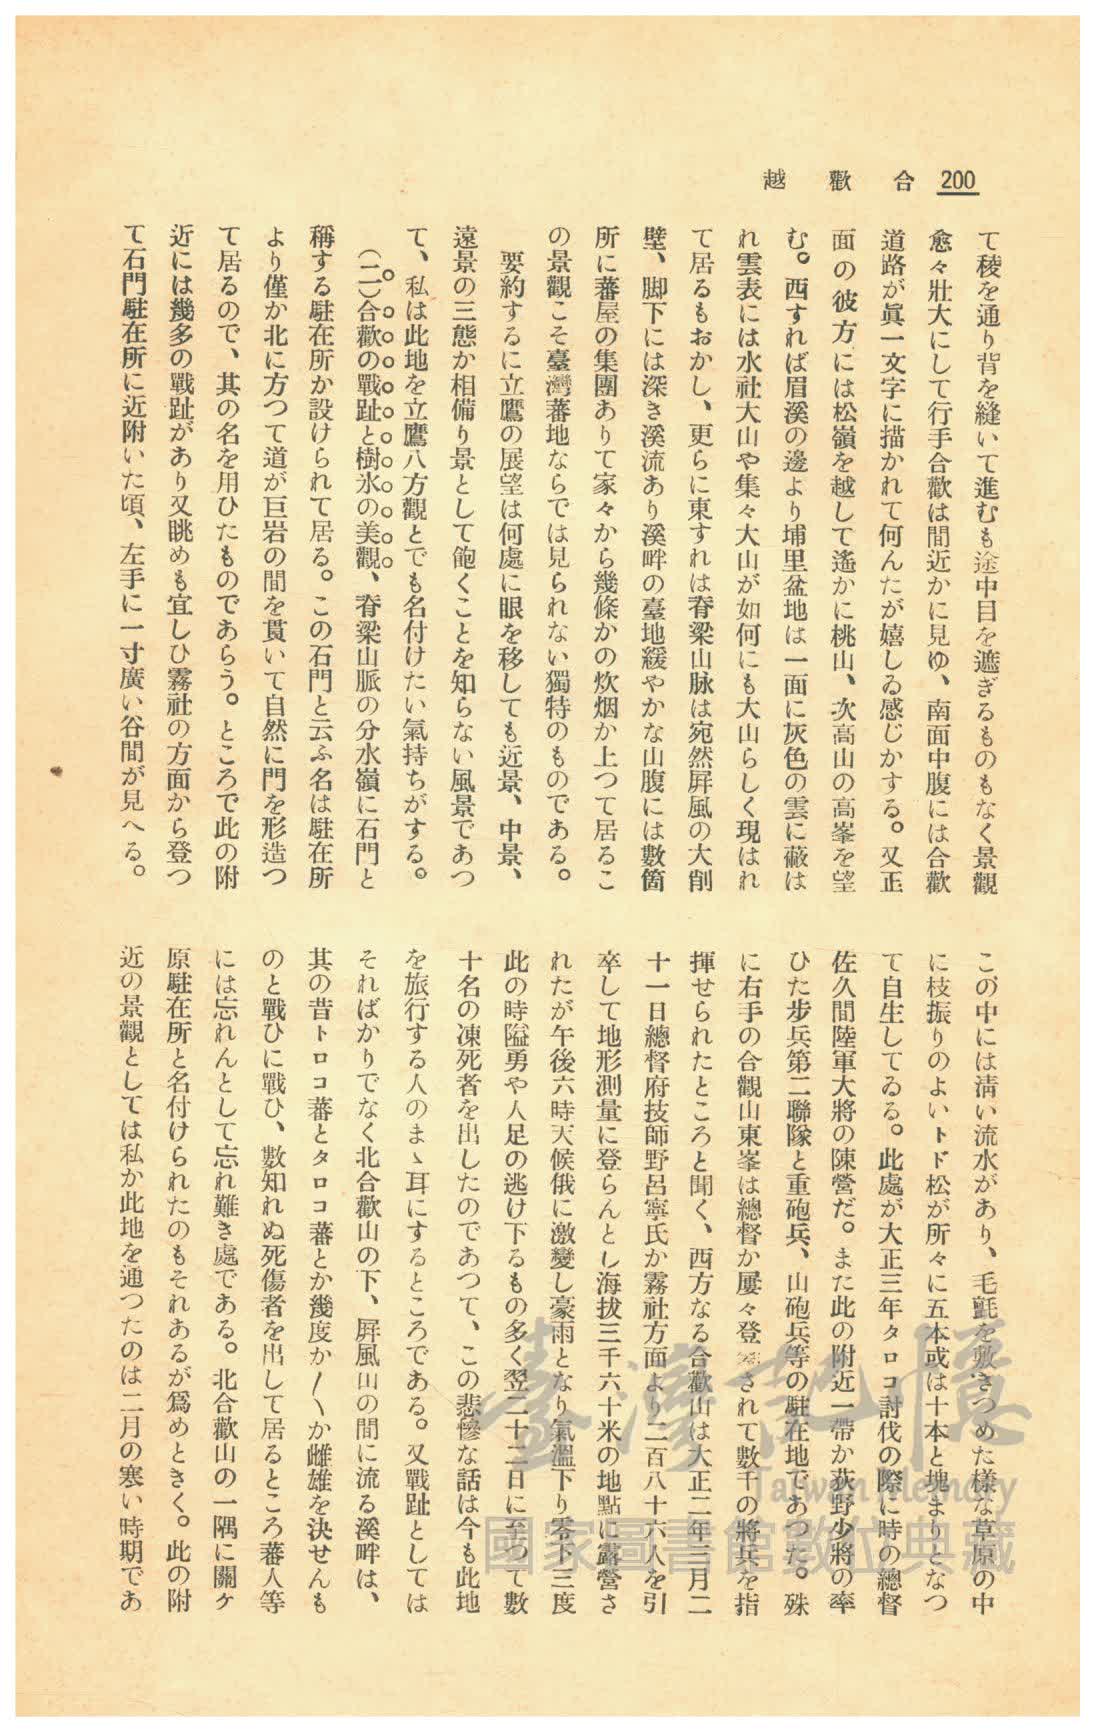 200 合歡越
て稜を通り背を縫いて進むも途中目を遮ぎるものもなく景觀
愈々壯大にして行手合歡は間近かに見ゆ、南面中腹には合歡
道路が眞一文字に描かれて何んたが嬉しる感じかする。又正
面の彼方には松嶺を越して遙かに桃山、次高山の高峯を望
む。西すれば眉溪の邊より埔里盆地は一面に灰色の雲に蔽は
れ雲表には水社大山や集々大山が如何にも大山らしく現はれ
て居るもおかし、更らに東すれは脊梁山脉は宛然屏風の大削
壁、脚下には深き溪流あり溪畔の臺地緩やかな山腹には數箇
所に蕃屋の集團ありて家々から幾條かの炊烟か上つて居るこ
の景觀こそ臺灣蕃地ならでは見られない獨特のものである。
要約するに立鷹の展望は何處に眼を移しても近景、中景、
遠景の三態か相備り景として飽くことを知らない風景であつ
て、私は此地を立鷹八方觀とでも名付けたい氣持ちがする。
(二)合歡の戰趾と樹氷の美觀、脊梁山脈の分水嶺に石門と
稱する駐在所か設けられて居る。この石門と云ふ名は駐在所
より僅か北に方つて道が巨岩の間を貫いて自然に門を形造つ
て居るので、其の名を用ひたものであらう。ところで此の附
近には幾多の戰趾があり又眺めも宜しひ霧社の方面から登つ
て石門駐在所に近附いた頃、左手に一寸廣い谷間が見へる。
この中には淸い流水があり、毛氈を敷きつめた樣な草原の中
に枝振りのよいトド松が所々に五本或は十本と塊まりとなつ
て自生してゐる。此處が大正三年タロコ討伐の際に時の總督
佐久間陸軍大將の陳營だ。また此の附近一帶か荻野少將の率
ひた步兵第二聯隊と重砲兵、山砲兵等の駐在地であつた。殊
に右手の合觀山東峯は總督か屢々登されて數千の將兵を指
揮せられたところと聞く、西方なる合歡山は大正二年三月二
十一日總督府技師野呂寧氏か霧社方面より二百八十六人を引
卒して地形測量に登らんとし海拔三千六十米の地點に露營さ
れたが午後六時天候俄に激變し豪雨となり氣溫下り零下三度
此の時隘勇や人足の逃け下るもの多く翌二十二日に至つて數
十名の凍死者を出したのであつて、この悲慘な話は今も此地
を旅行する人のまゝ耳にするところである。又戰趾としては
そればかりでなく北合歡山の下、屏風山の間に流る溪畔は、
其の昔トロコ蕃とタロコ蕃とか幾度か〱か雌雄を決せんも
のと戰ひに戰ひ、數知れぬ死傷者を出して居るところ蕃人等
には忘れんとして忘れ難き處である。北合歡山の一隅に關ケ
原駐在所と名付けられたのもそれあるが爲めときく。此の附
近の景觀としては私か此地を通つたのは二月の寒い時期であ
臺灣記憶
Taiwan Memory
國家圖書館數位典藏